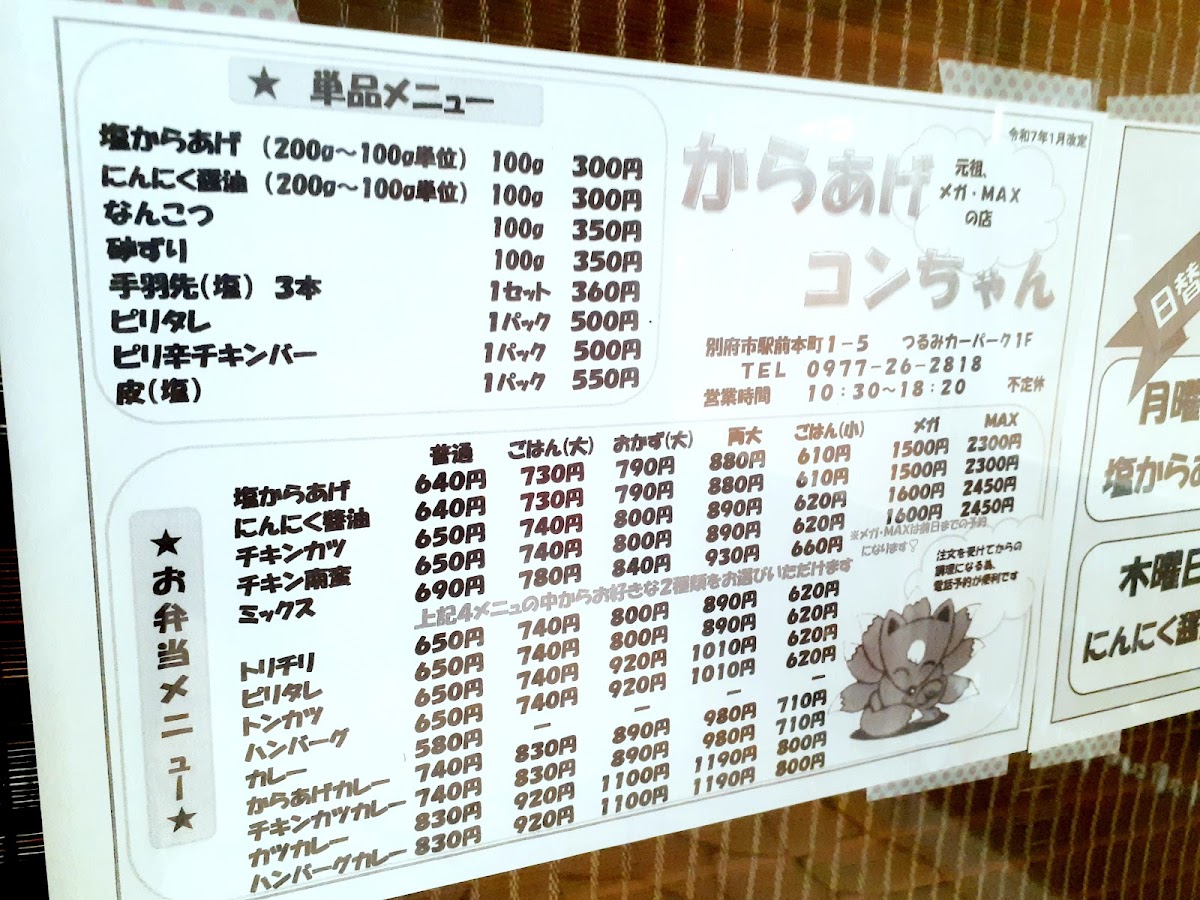 ★ 単品メニュー
塩からあげ (200g～100g単位) 100g 300円
にんにく醤油 (200g～100g単位) 100g 300円
なんこつ 100g 350円
砂ずり 100g 350円
手羽先(塩) 3本 1セット 360円
ピリタレ 1パック 500円
ピリ辛チキンバー 1パック 500円
皮(塩) 1パック 550円
令和7年1月改定
からあげ
コンちゃん
元祖、
メガ・MAX
の店
別府市駅前本町1－5 つるみカーパーク1F
TEL 0977－26－2818
営業時間 10：30～18：20 不定休
★お弁当メニュー★
普通 ごはん(大) おかず(大) 両大 ごはん(小) メガ MAX
塩からあげ 640円 730円 790円 880円 610円 1500円 2300円
にんにく醤油 640円 730円 790円 880円 610円 1500円 2300円
チキンカツ 650円 740円 800円 890円 620円 1600円 2450円
チキン南蛮 650円 740円 800円 890円 620円 1600円 2450円
ミックス 690円 780円 840円 930円 660円
※メガ・MAXは前日までの予約
になります♡
上記4メニュの中からお好きな2種類をお選びいただけます
トリチリ 650円 740円 800円 890円 620円
ピリタレ 650円 740円 800円 890円 620円
トンカツ 650円 740円 920円 1010円 620円
ハンバーグ 650円 740円 920円 1010円 620円
カレー 580円 － － － －
からあげカレー 740円 830円 890円 980円 710円
チキンカツカレー 740円 830円 890円 980円 710円
カツカレー 830円 920円 1100円 1190円 800円
ハンバーグカレー 830円 920円 1100円 1190円 800円
注文を受けてからの
調理になる為、
電話予約が便利です
日替
月曜
塩からあ
木曜日
にんにく醤